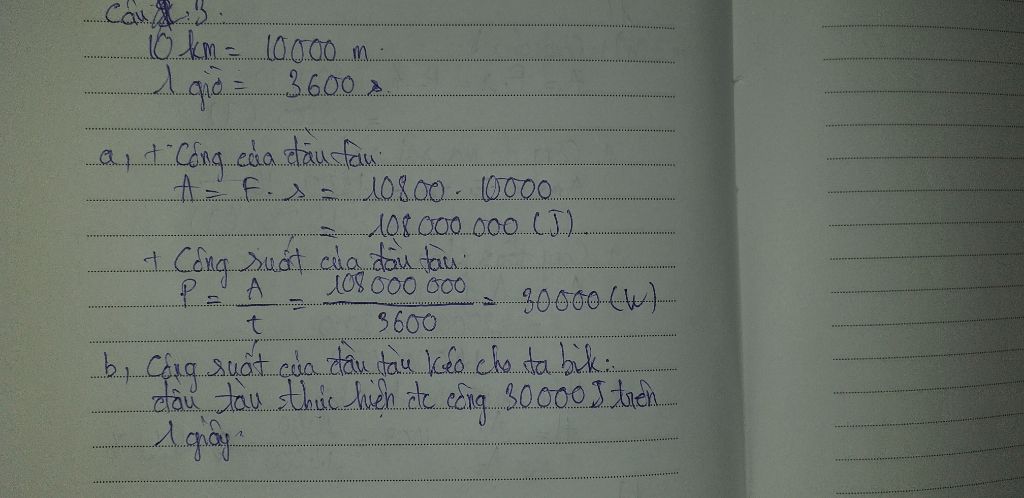 Câu 3.
10 km = 10000 m.
1 giờ = 3600 s
a, + Công của đầu tàu:
A = F. s = 10800 . 10000
= 108 000 000 (J).
+ Công suất của đầu tàu:
P = A / t = 108 000 000 / 3600 = 30000 (W)
b, Công suất của đầu tàu kéo cho ta bik:
đầu tàu thực hiện đc công 30000 J trên
1 giây.